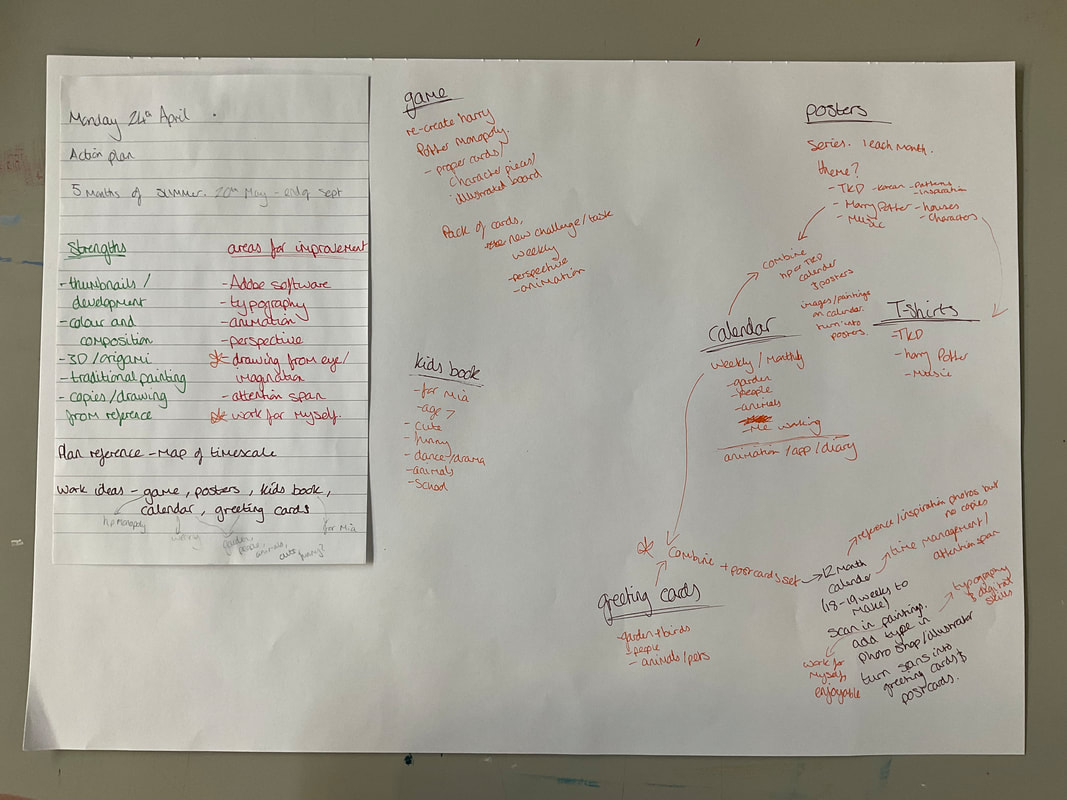 Monday 24th April
Action plan
5 Months of summer. 20th May - end of Sept
Strengths
- thumbnails /
development
- colour and
composition
- 3D / origami
- traditional painting
- copies / drawing
from reference
areas for improvement
- Adobe software
- typography
- animation
- perspective
* drawing from eye/
imagination
- attention span
* work for myself.
Plan reference - Map of timescale
Work ideas - game, posters, kids book,
calendar, greeting cards
hp monopoly
garden,
people,
animals,
cute
funny?
for Mia
game
re-create harry
Potter Monopoly.
- proper cards/
character pieces/
illustrated board
Pack of cards,
new challenge/task
weekly
- perspective
- animation
kids book
- for Mia
- age 7
- cute
- funny
- dance/drama
- animals
- School
posters
Series. 1 each month.
theme?
- TKD - korean - patterns
- inspiration
- Harry Potter - houses
- characters
- Music
combine
hp or TKD
calender
& posters
images/paintings
on calendar.
turn into
posters.
T-shirts
- TKD
- harry Potter
- Music
calendar
weekly / Monthly
- garden
- people
- animals
- Me working
animation / app / diary
* Combine + postcards set
greeting cards
- garden + birds
- people
- animals/pets
12 Month
calender
(18-19 weeks to
make)
scan in paintings.
add type in
photoshop/illustrator
turn scans into
greeting cards &
postcards.
reference/inspiration photos but
no copies
time management/
attention span
typography
& digital
skills
work for
myself
enjoyable